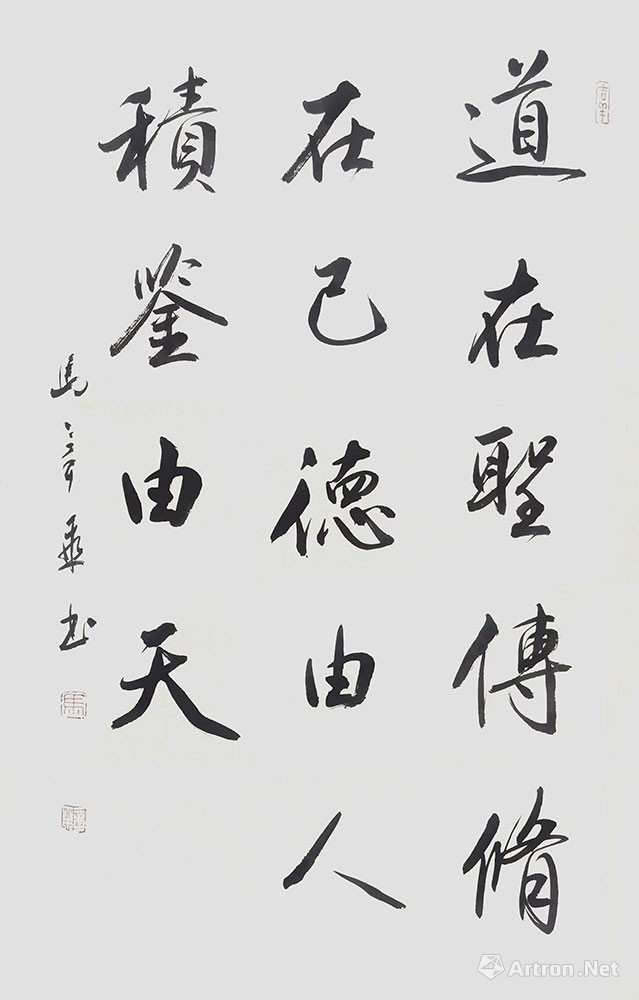 道在聖傳脩
在己德由人
積鑒由天
馬
書
Artron.Net